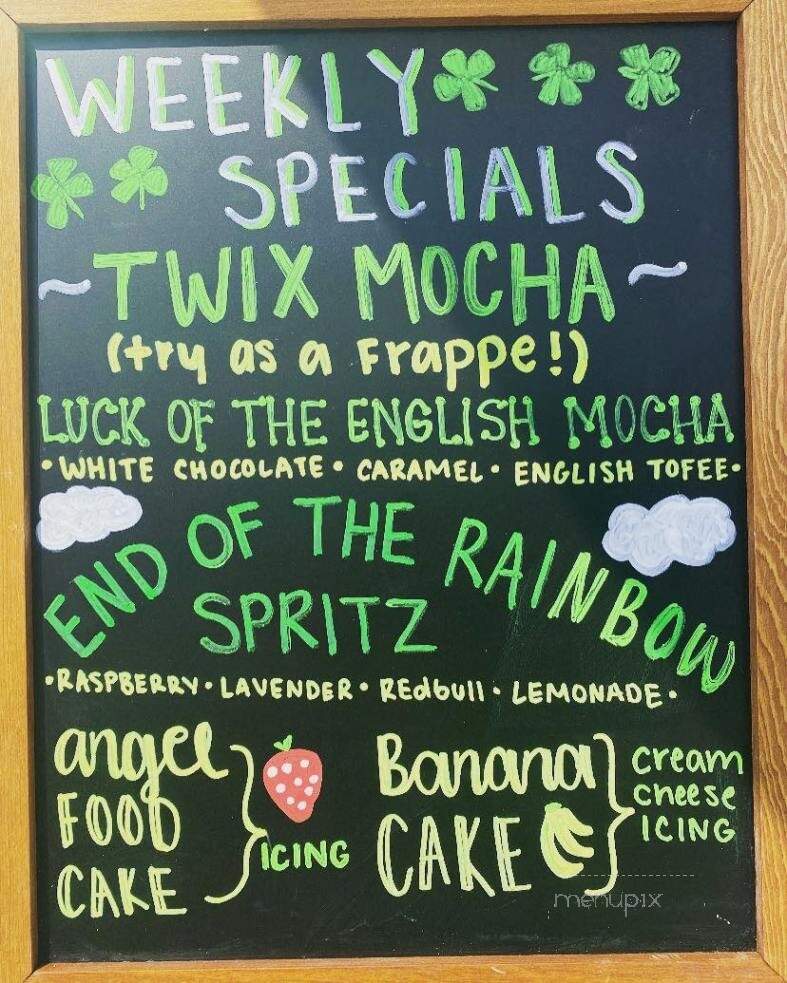 WEEKLY
SPECIALS
~TWIX MOCHA~
(try as a Frappe!)
LUCK OF THE ENGLISH MOCHA
•WHITE CHOCOLATE• CARAMEL• ENGLISH TOFEE•
END OF THE RAINBOW
SPRITZ
•RASPBERRY•LAVENDER• REdbull• LEMONADE•
angel
FOOD
CAKE
ICING
Banana
CAKE
cream
cheese
ICING
menupix